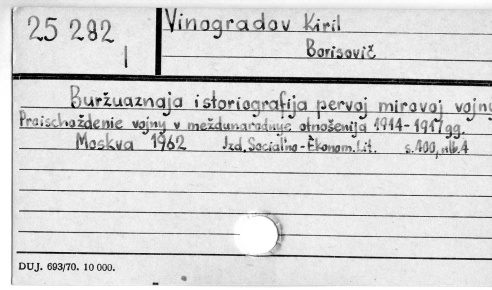 25 282
I
Vinogradov Kiril
Borisovič
Buržuaznaja istoriografija pervoj mirovoj vojny
Proischoždenie vojny v meždunarodnye otnošenija 1914-1917 gg.
Moskva 1962 Izd. Social'no-Ėkonom. Lit. s. 400, nlb. 4
DUJ. 693/70. 10 000.